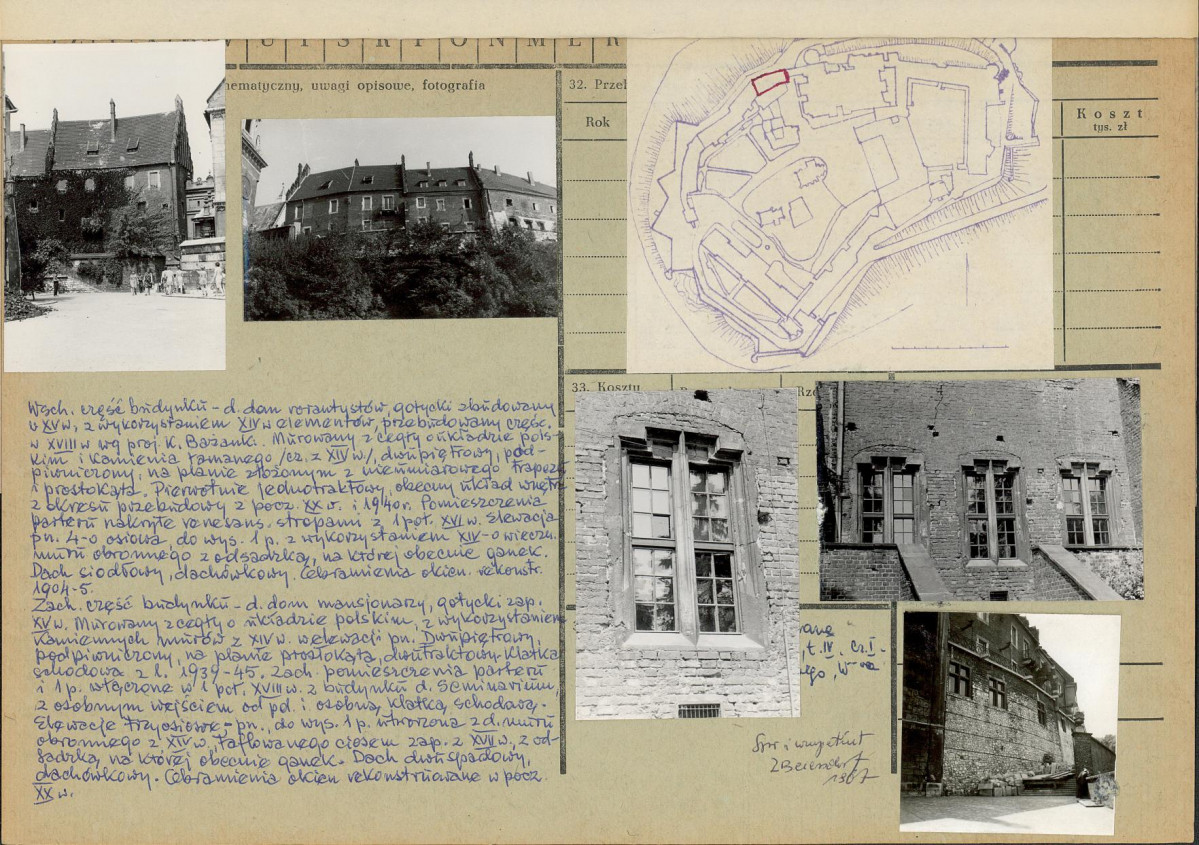 W U T S R P O N M Ł R
hematyczny, uwagi opisowe, fotografia
32. Przeb
Rok
Koszt
tys. zł
33. Kosztu
Wsch. część budynku – d. dom rorantystów, gotycki zbudowany
w XV w, z wykorzystaniem XIV w elementów, przebudowany częśc.
w XVIII w wg proj. K. Bażanki. Murowany z cegły o układzie pols-
kim i kamienia łamanego /cz. z XIV w/, dwupiętrowy, pod-
piwniczony, na planie złożonym z nieumiarowego trapezu
i prostokąta. Pierwotnie jednotraktowy, obecny układ wnętrz
z okresu przebudowy z pocz. XX w. i 1940 r. Pomieszczenia
parteru nakryte renesans. stropami z 1 poł. XVI w. Elewacja
pn. 4-o osiowa, do wys. 1 p. z wykorzystaniem XIV-o wieczn.
muru obronnego z odsadzką, na której obecnie ganek.
Dach siodłowy, dachówkowy. Obramienia okien rekonstr.
1904-5.
Zach. część budynku – d. dom mansjonarzy, gotycki zap.
XV w. Murowany z cegły o układzie polskim, z wykorzystaniem
kamiennych murów z XIV w. w elewacji pn. Dwupiętrowy,
podpiwniczony, na planie prostokąta, dwutraktowy. Klatka
schodowa z l. 1939-45. Zach. pomieszczenia parteru
i 1 p. włączone w 1 poł. XVIII w. z budynku d. Seminarium,
z osobnym wejściem od pd. i osobną klatką schodową.
Elewacje trzyosiowe – pn., do wys. 1 p. utworzona z d. muru
obronnego z XIV w. taflowanego ciosem zap. z XVII w., z od-
sadzką, na której obecnie ganek. Dach dwuspadowy,
dachówkowy. Obramienia okien rekonstruowane w pocz.
XX w.
t. IV, cz. I-
Spr i uzupełnił
Z Beiersdorf